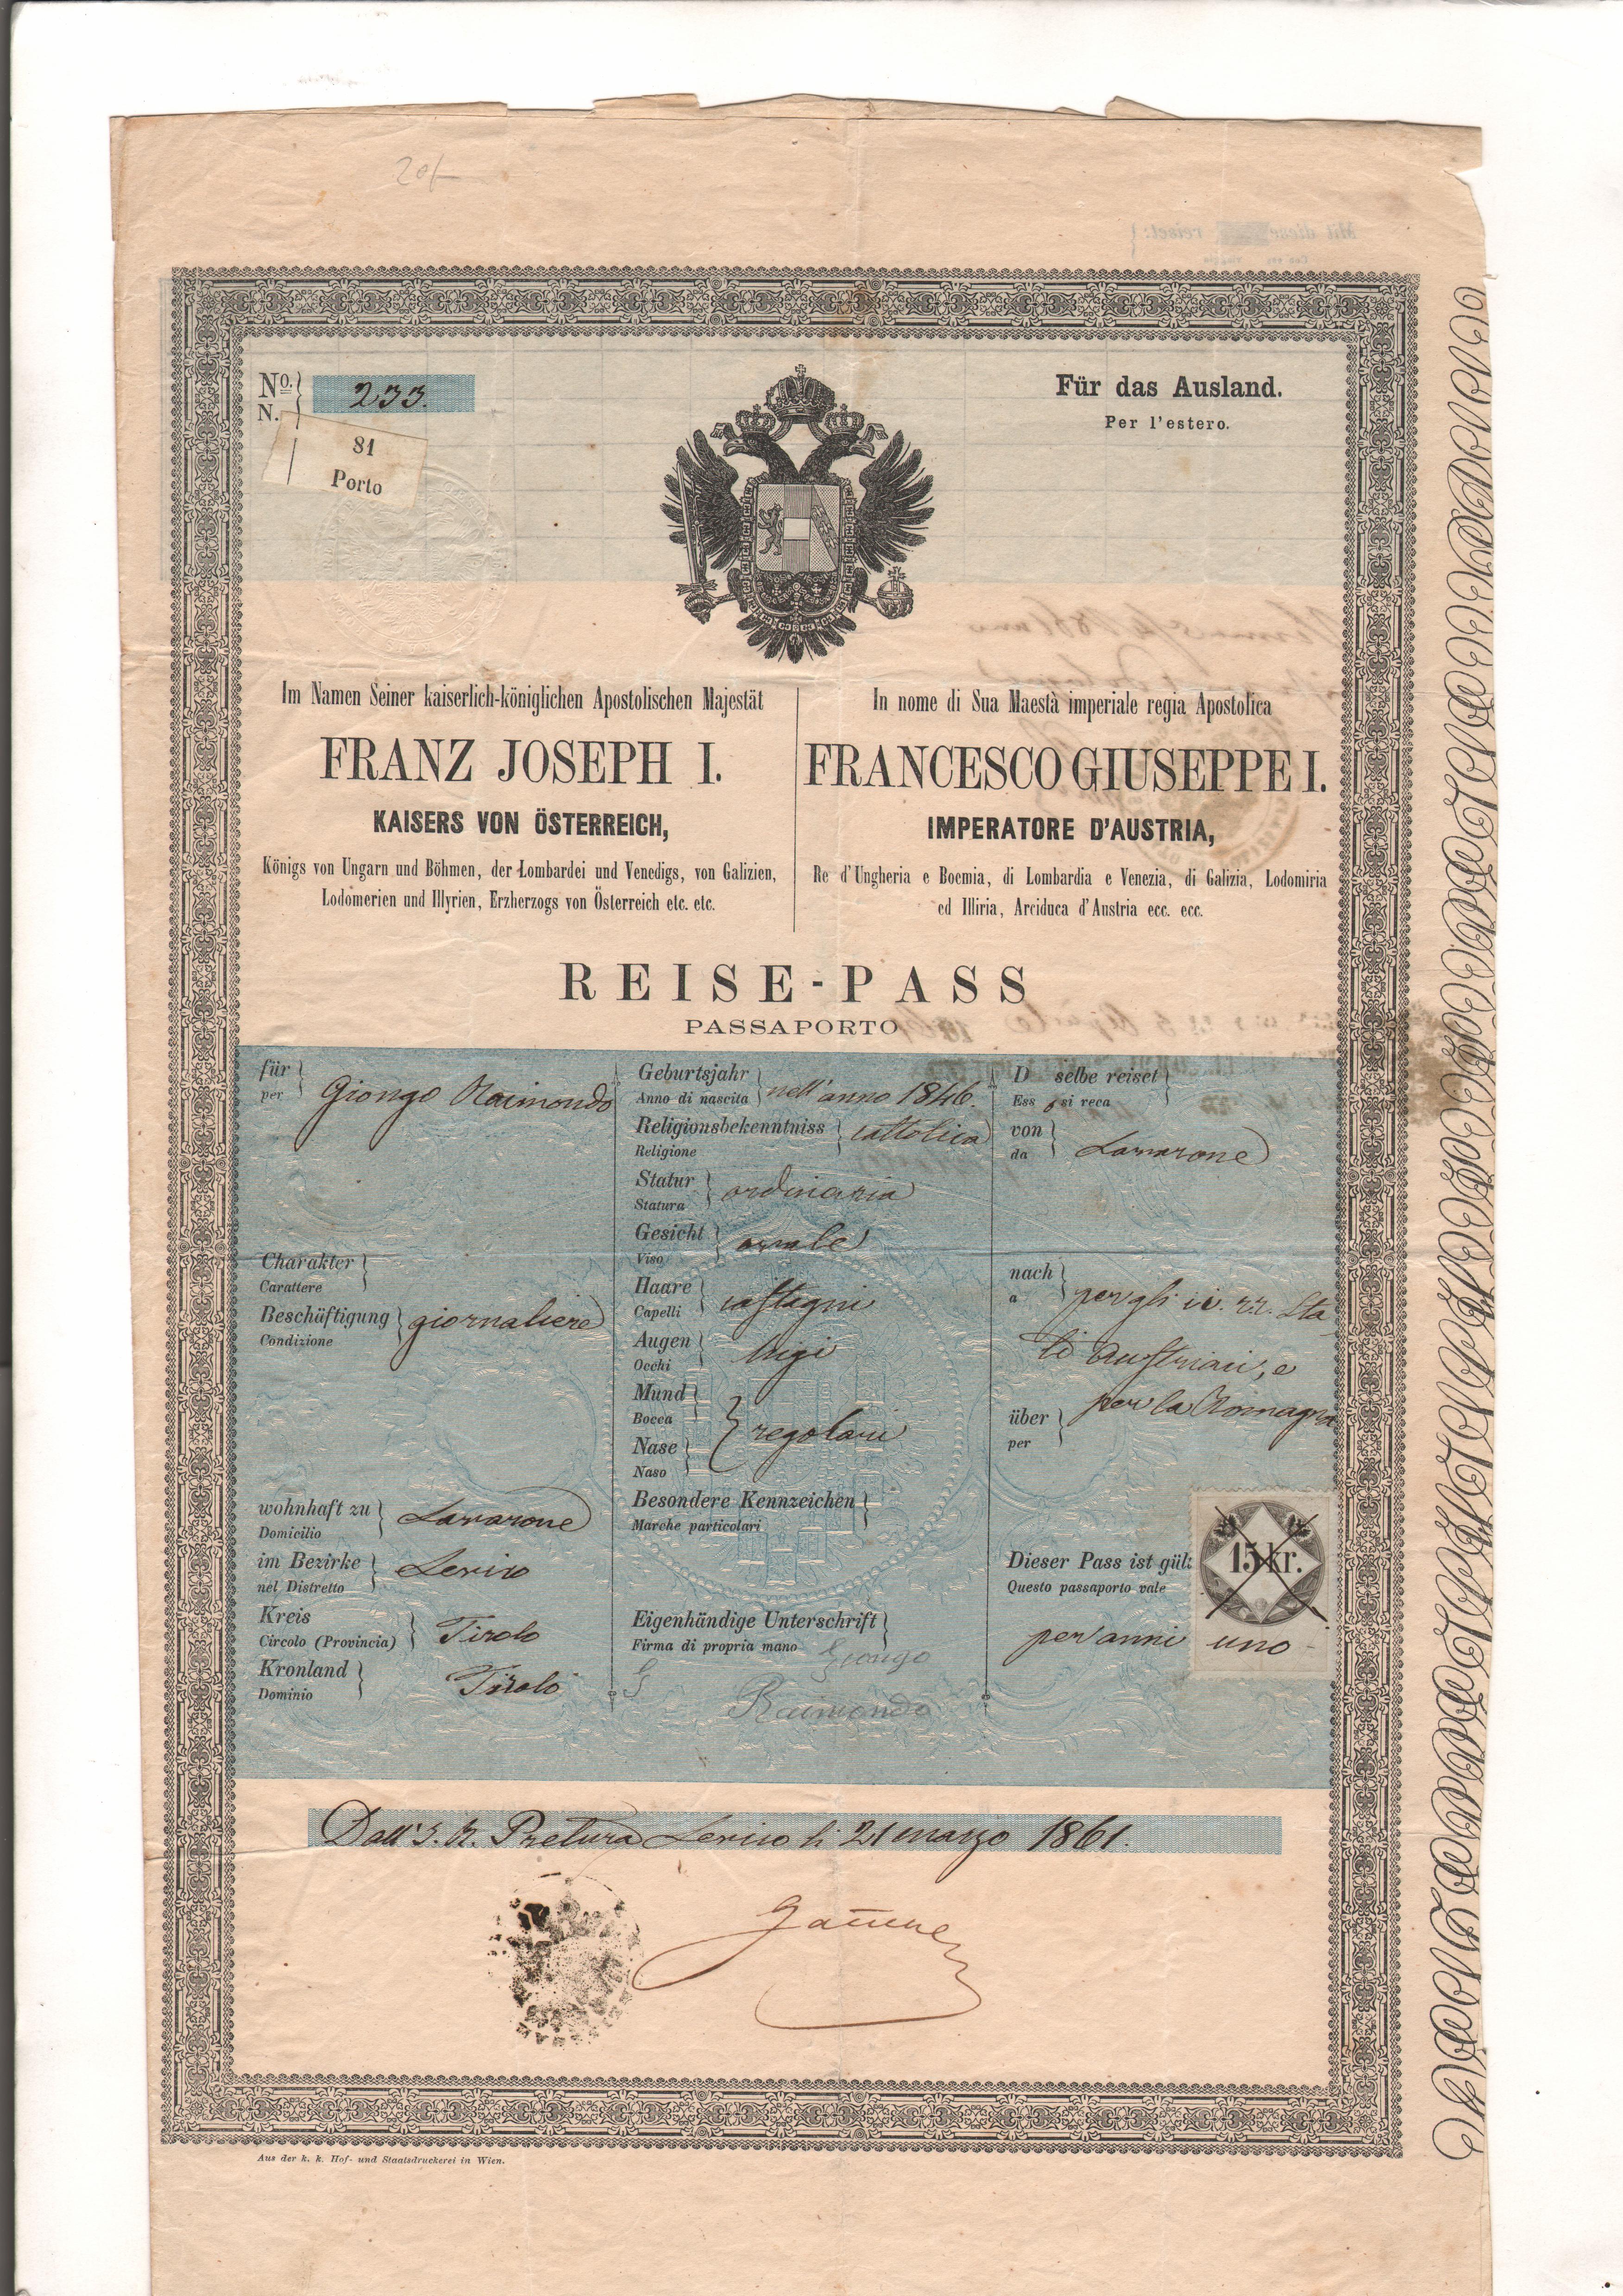 No. 233.
N.
81
Porto
Für das Ausland.
Per l'estero.
Im Namen Seiner kaiserlich-königlichen Apostolischen Majestät
FRANZ JOSEPH I.
KAISERS VON ÖSTERREICH,
Königs von Ungarn und Böhmen, der Lombardei und Venedigs, von Galizien,
Lodomerien und Illyrien, Erzherzogs von Österreich etc. etc.
In nome di Sua Maestà imperiale regia Apostolica
FRANCESCO GIUSEPPE I.
IMPERATORE D'AUSTRIA,
Re d'Ungheria e Boemia, di Lombardia e Venezia, di Galizia, Lodomiria
ed Illiria, Arciduca d'Austria ecc. ecc.
REISE-PASS
PASSAPORTO
für
per Giongo Raimondo
Charakter
Carattere
Beschäftigung giornaliere
Condizione
wohnhaft zu Lavarone
Domicilio
im Bezirke Levico
nel Distretto
Kreis
Circolo (Provincia) Tirolo
Kronland
Dominio Tirolo
Geburtsjahr
Anno di nascita nell'anno 1846.
Religionsbekenntniss cattolica
Religione
Statur
Statura ordinaria
Gesicht
Viso ovale
Haare
Capelli castagni
Augen
Occhi bigi
Mund
Bocca
regolari
Nase
Naso
Besondere Kennzeichen
Marche particolari
Eigenhändige Unterschrift
Firma di propria mano Giongo
G Raimondo
D selbe reiset
Ess o si reca
von
da Lavarone
nach
a per gli ii. rr. Sta
ti Austriaci, e
per la Romagna
über
per
Dieser Pass ist gül
Questo passaporto vale
15 kr.
per anni uno
Dall'I. R. Pretura Levico li 21 marzo 1861.
Aus der k. k. Hof- und Staatsdruckerei in Wien.